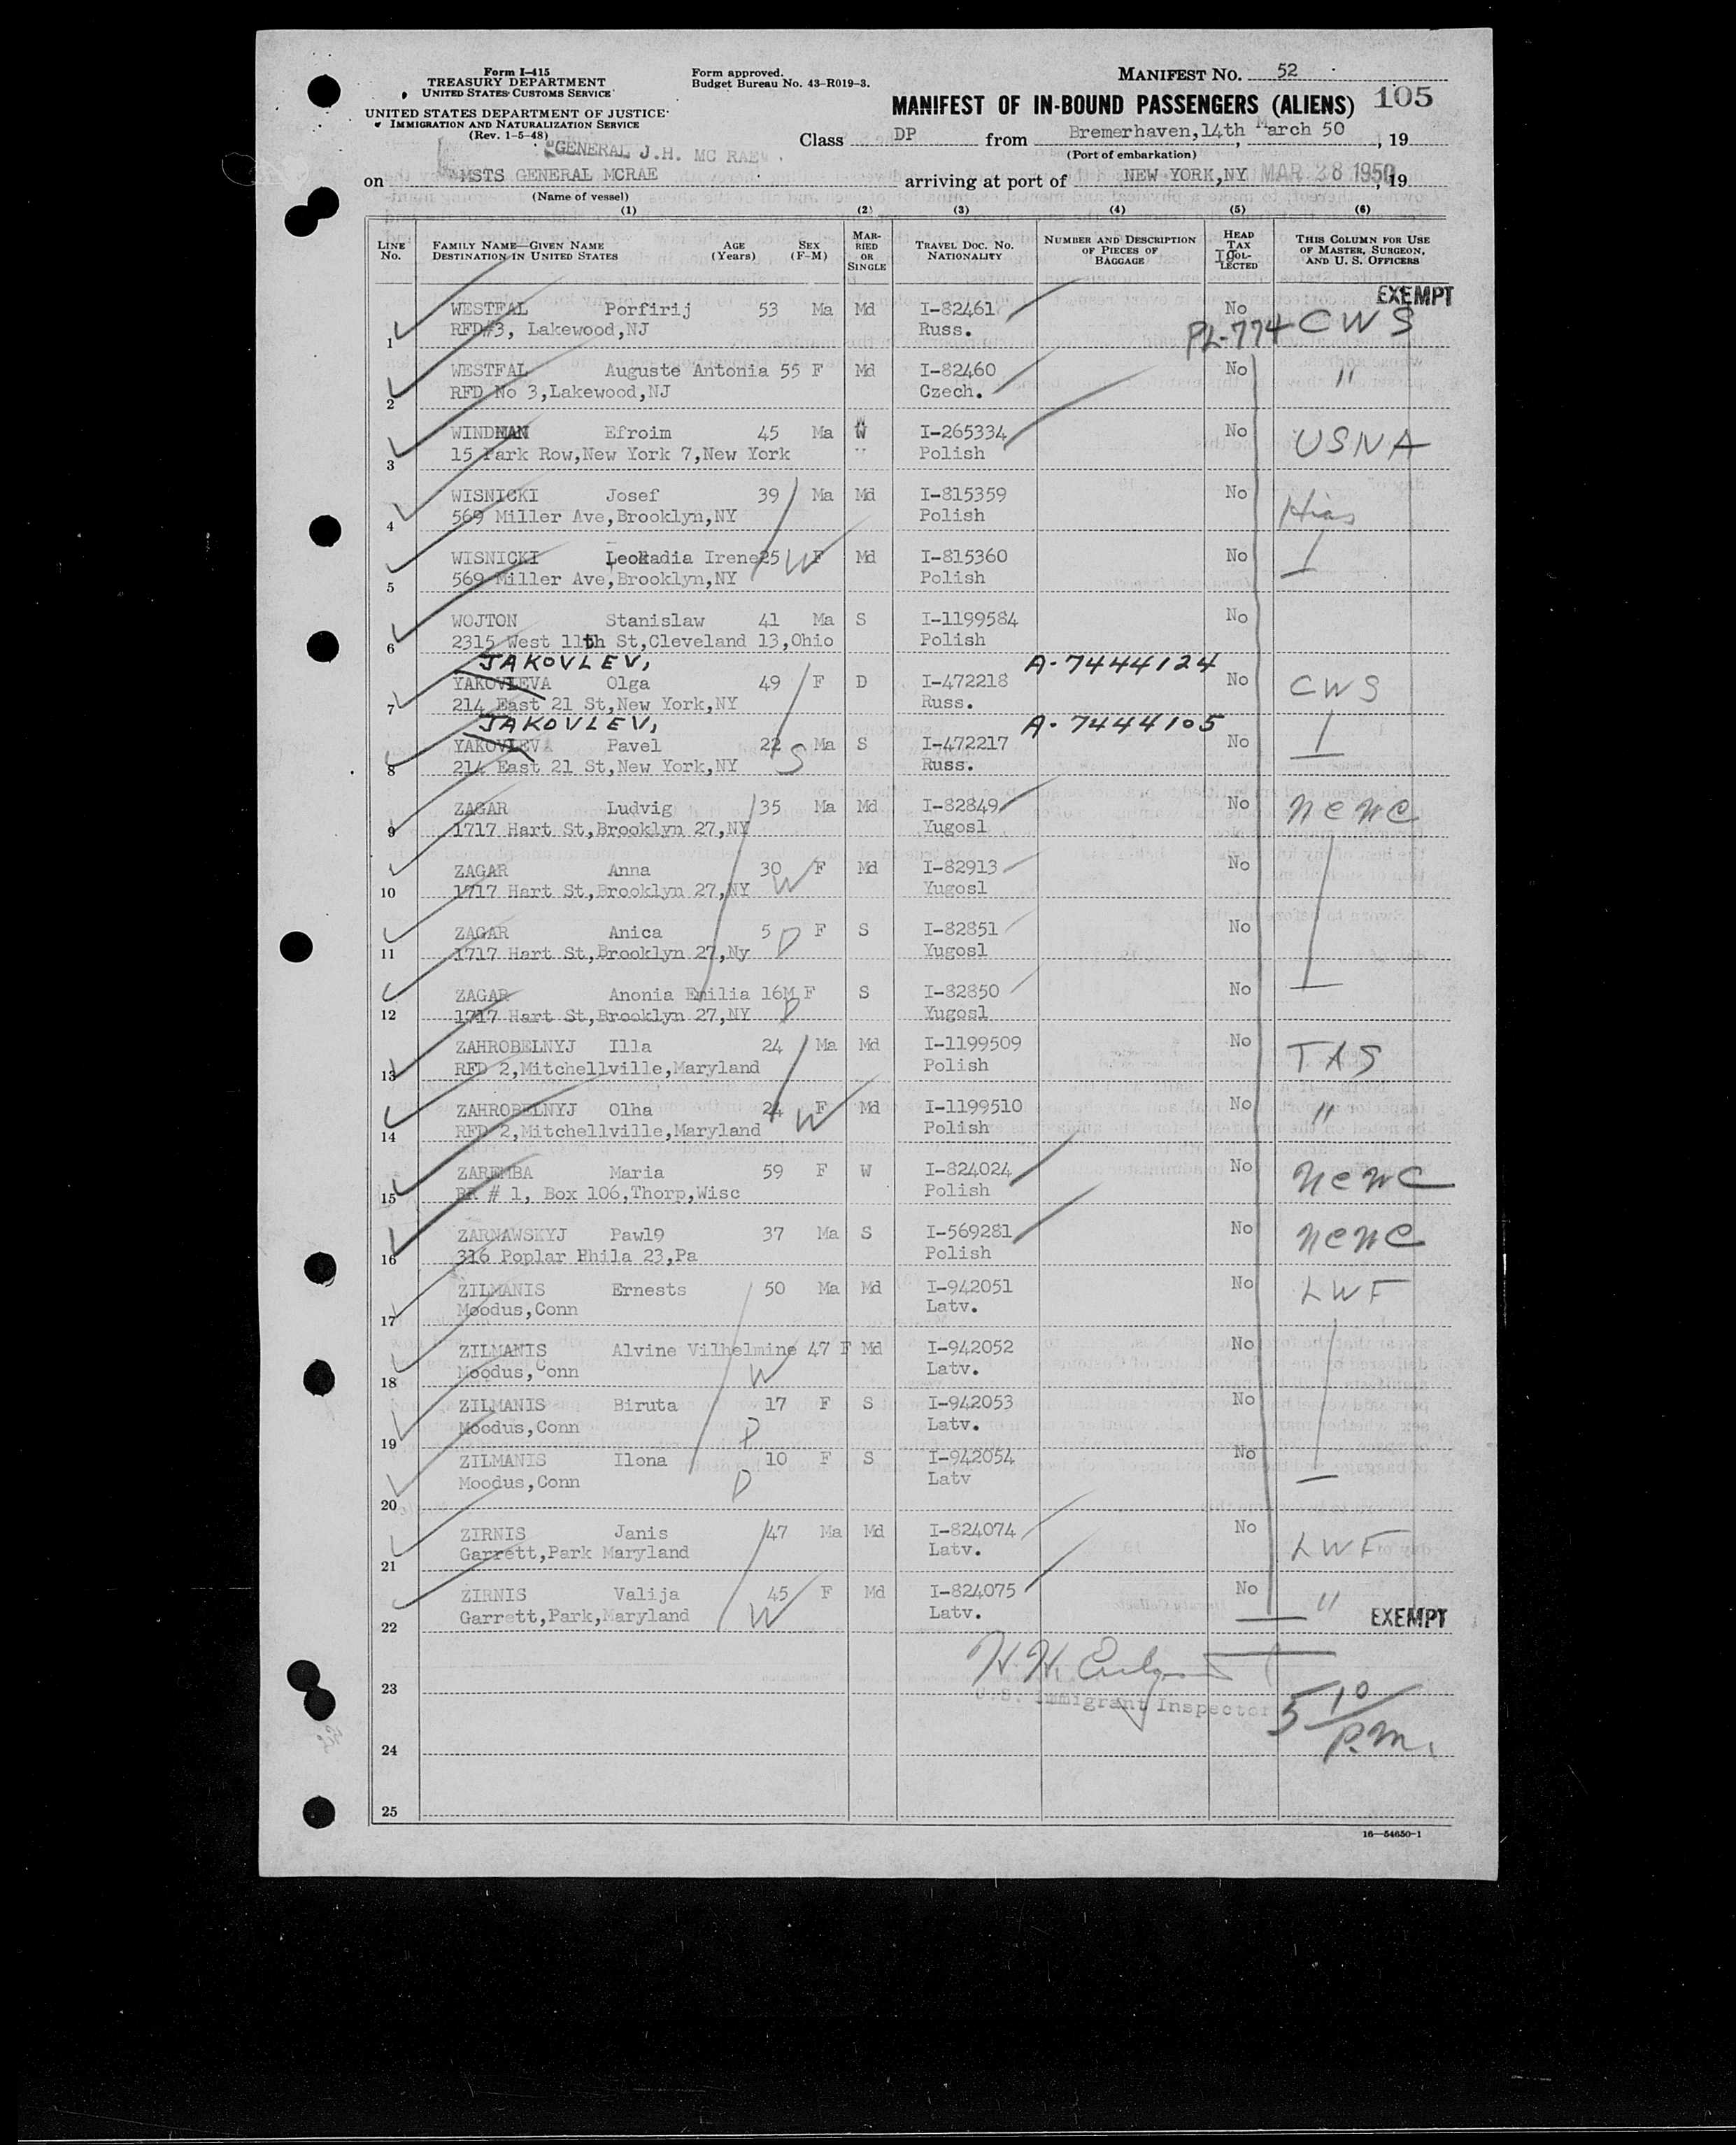 Form I-415
TREASURY DEPARTMENT
UNITED STATES CUSTOMS SERVICE
UNITED STATES DEPARTMENT OF JUSTICE
IMMIGRATION AND NATURALIZATION SERVICE
(Rev. 1-5-48)
Form approved.
Budget Bureau No. 43-R019-3.
MANIFEST No. 52
MANIFEST OF IN-BOUND PASSENGERS (ALIENS) 105
Class DP from Bremerhaven,14th March 50, 19
(Port of embarkation)
GENERAL J.H. MC RAE
on MSTS GENERAL MCRAE arriving at port of NEW YORK,NY MAR 28 1950, 19
(Name of vessel)
(1) (2) (3) (4) (5) (6)
LINE No. FAMILY NAME—GIVEN NAME DESTINATION IN UNITED STATES AGE (Years) SEX (F-M) MARRIED OR SINGLE TRAVEL DOC. NO. NATIONALITY NUMBER AND DESCRIPTION OF PIECES OF BAGGAGE HEAD TAX COLLECTED THIS COLUMN FOR USE OF MASTER, SURGEON, AND U. S. OFFICERS
EXEMPT
WESTFAL Porfirij 53 Ma Md I-82461 No
1 RFD#3, Lakewood,NJ Russ. PL-774 CWS
WESTFAL Auguste Antonia 55 F Md I-82460 No "
2 RFD No 3,Lakewood,NJ Czech.
WINDMAN Efroim 45 Ma W I-265334 No USNA
3 15 Park Row,New York 7,New York Polish
WISNICKI Josef 39 Ma Md I-815359 No Hias
4 569 Miller Ave,Brooklyn,NY Polish
WISNICKI Leokadia Irene 25 W F Md I-815360 No
5 569 Miller Ave,Brooklyn,NY Polish
WOJTON Stanislaw 41 Ma S I-1199584 No
6 2315 West 11th St,Cleveland 13,Ohio Polish
JAKOVLEV, A-7444124
YAKOVLEVA Olga 49 F D I-472218 No CWS
7 214 East 21 St,New York,NY Russ.
JAKOVLEV, A-7444105
YAKOVLEV Pavel 22 S Ma S I-472217 No
8 214 East 21 St,New York,NY Russ.
ZAGAR Ludvig 35 Ma Md I-82849 No NCWC
9 1717 Hart St,Brooklyn 27,NY Yugosl
ZAGAR Anna 30 W F Md I-82913 No
10 1717 Hart St,Brooklyn 27,NY Yugosl
ZAGAR Anica 5 D F S I-82851 No
11 1717 Hart St,Brooklyn 27,Ny Yugosl
ZAGAR Anonia Emilia 16M F S I-82850 No
12 1717 Hart St,Brooklyn 27,NY D Yugosl
ZAHROBELNYJ Illa 24 Ma Md I-1199509 No TAS
13 RFD 2,Mitchellville,Maryland Polish
ZAHROBELNYJ Olha 24 W F Md I-1199510 No "
14 RFD 2,Mitchellville,Maryland Polish
ZAREMBA Maria 59 F W I-824024 No NCWC
15 RR # 1, Box 106,Thorp,Wisc Polish
ZARNAWSKYJ Pawl9 37 Ma S I-569281 No NCWC
16 316 Poplar Phila 23,Pa Polish
ZILMANIS Ernests 50 Ma Md I-942051 No LWF
17 Moodus,Conn Latv.
ZILMANIS Alvine Vilhelmine 47 F Md I-942052 No
18 Moodus,Conn W Latv.
ZILMANIS Biruta 17 F S I-942053 No
19 Moodus,Conn D Latv.
ZILMANIS Ilona 10 F S I-942054 No
20 Moodus,Conn D Latv
ZIRNIS Janis 47 Ma Md I-824074 No LWF
21 Garrett,Park Maryland Latv.
ZIRNIS Valija 45 F Md I-824075 No "
22 Garrett,Park,Maryland W Latv. EXEMPT
H. H.
23 U.S. Immigrant Inspector 5 10
P.M.
24
25
16—54650-1